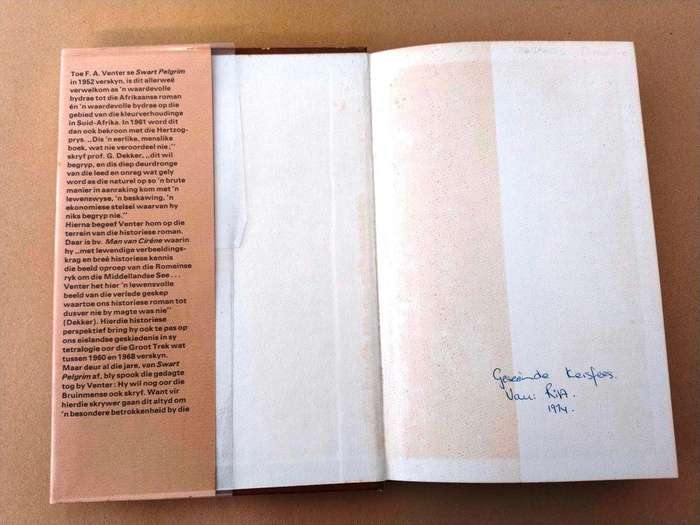 Toe F. A. Venter se Swart Pelgrim
in 1952 verskyn, is dit allerweë
verwelkom as 'n waardevolle
bydrae tot die Afrikaanse roman
én 'n waardevolle bydrae op die
gebied van die kleurverhoudinge
in Suid-Afrika. In 1961 word dit
dan ook bekroon met die Hertzog-
prys. „Dis 'n eerlike, menslike
boek, wat nie veroordeel nie;"
skryf prof. G. Dekker, „dit wil
begryp, en dis diep deurdronge
van die leed en onreg wat gely
word as die naturel op so 'n brute
manier in aanraking kom met 'n
lewenswyse, 'n beskawing, 'n
ekonomiese stelsel waarvan hy
niks begryp nie."
Hierna begeef Venter hom op die
terrein van die historiese roman.
Daar is bv. Man van Ciréne waarin
hy „met lewendige verbeeldings-
krag en breë historiese kennis
die beeld oproep van die Romeinse
ryk om die Middellandse See ...
Venter het hier 'n lewensvolle
beeld van die verlede geskep
waartoe ons historiese roman tot
dusver nie by magte was nie"
(Dekker). Hierdie historiese
perspektief bring hy ook te pas op
ons eielandse geskiedenis in sy
tetralogie oor die Groot Trek wat
tussen 1960 en 1968 verskyn.
Maar deur al die jare, van Swart
Pelgrim af, bly spook die gedagte
tog by Venter: Hy wil nog oor die
Bruinmense ook skryf. Want vir
hierdie skrywer gaan dit altyd om
'n besondere betrokkenheid by die
Geseënde Kersfees.
Van: RIA.
1974.